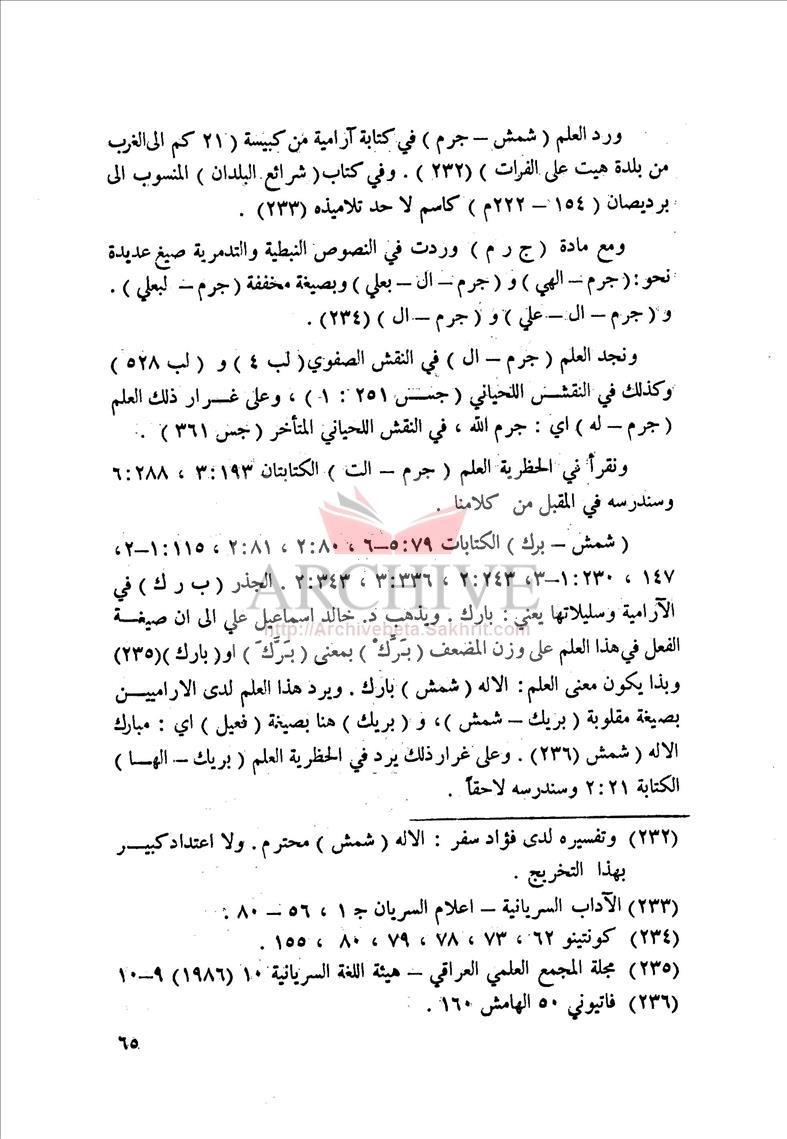 ورد العلم ( شمش – جرم ) في كتابة آرامية من كبيسة ( ٢١ كم الى الغرب
من بلدة هيت على الفرات ) (٢٣٢) . وفي كتاب ( شرائع البلدان ) المنسوب الى
برديصان ( ١٥٤ – ٢٢٢م ) كاسم لا حد تلاميذه (٢٣٣) .
ومع مادة ( ج ر م ) وردت في النصوص النبطية والتدمرية صيغ عديدة
نحو : ( جرم – الهي ) و ( جرم – ال – بعلي ) وبصيغة مخففة ( جرم – لبعلي ) .
و ( جرم – ال – علي ) و ( جرم – ال ) (٢٣٤) .
ونجد العلم ( جرم – ال ) في النقش الصفوي ( لب ٤ ) و ( لب ٥٢٨ )
وكذلك في النقش اللحياني ( جسس ٢٥١ : ١ ) ، وعلى غرار ذلك العلم
( جرم – له ) اي : جرم الله ، في النقش اللحياني المتأخر ( جس ٣٦١ ) .
ونقرأ ني الحظرية العلم ( جرم – الت ) الكتابتان ٣:١٩٣ ، ٦:٢٨٨
وسندرسه في المقبل من كلامنا .
( شمش – برك ) الكتابات ٥:٧٩–٦ ، ٢:٨٠ ، ٢:٨١ ، ١:١١٥–٢،
١٤٧ ، ١:٢٣٠–٣، ٢:٢٤٣ ، ٣:٣٣٦ ، ٢:٣٤٣ . الجذر ( ب ر ك ) في
الآرامية وسليلاتها يعني : بارك . ويذهب د. خالد اسماعيل علي الى ان صيغة
الفعل في هذا العلم على وزن المضعف ( بَرَّكْ ) بمعنى ( بَرَّكَ ) او ( بارك ) (٢٣٥)
وبذا يكون معنى العلم : الاله ( شمش ) بارك . ويرد هذا العلم لدى الاراميين
بصيغة مقلوبة ( بريك – شمش )، و ( بريك ) هنا بصيغة ( فعيل ) اي : مبارك
الاله ( شمش (٢٣٦) . وعلى غرار ذلك يرد في الحظرية العلم ( بريك – الها )
الكتابة ٢:٢١ وسندرسه لاحقاً .
(٢٣٢) وتفسيره لدى فؤاد سفر : الاله ( شمش ) محترم . ولا اعتداد كبير
بهذا التخريج .
(٢٣٣) الآداب السريانية – اعلام السريان جـ ١ ، ٥٦ – ٨٠ .
(٢٣٤) كونتينو ٦٢ ، ٧٣ ، ٧٨ ، ٧٩ ، ٨٠ ، ١٥٥ .
(٢٣٥) مجلة المجمع العلمي العراقي – هيئة اللغة السريانية ١٠ (١٩٨٦) ٩–١٠
(٢٣٦) فاتيوني ٥٠ الهامش ١٦٠ .
٦٥
ARCHIVE
http://Archivebeta.Sakhrit.com